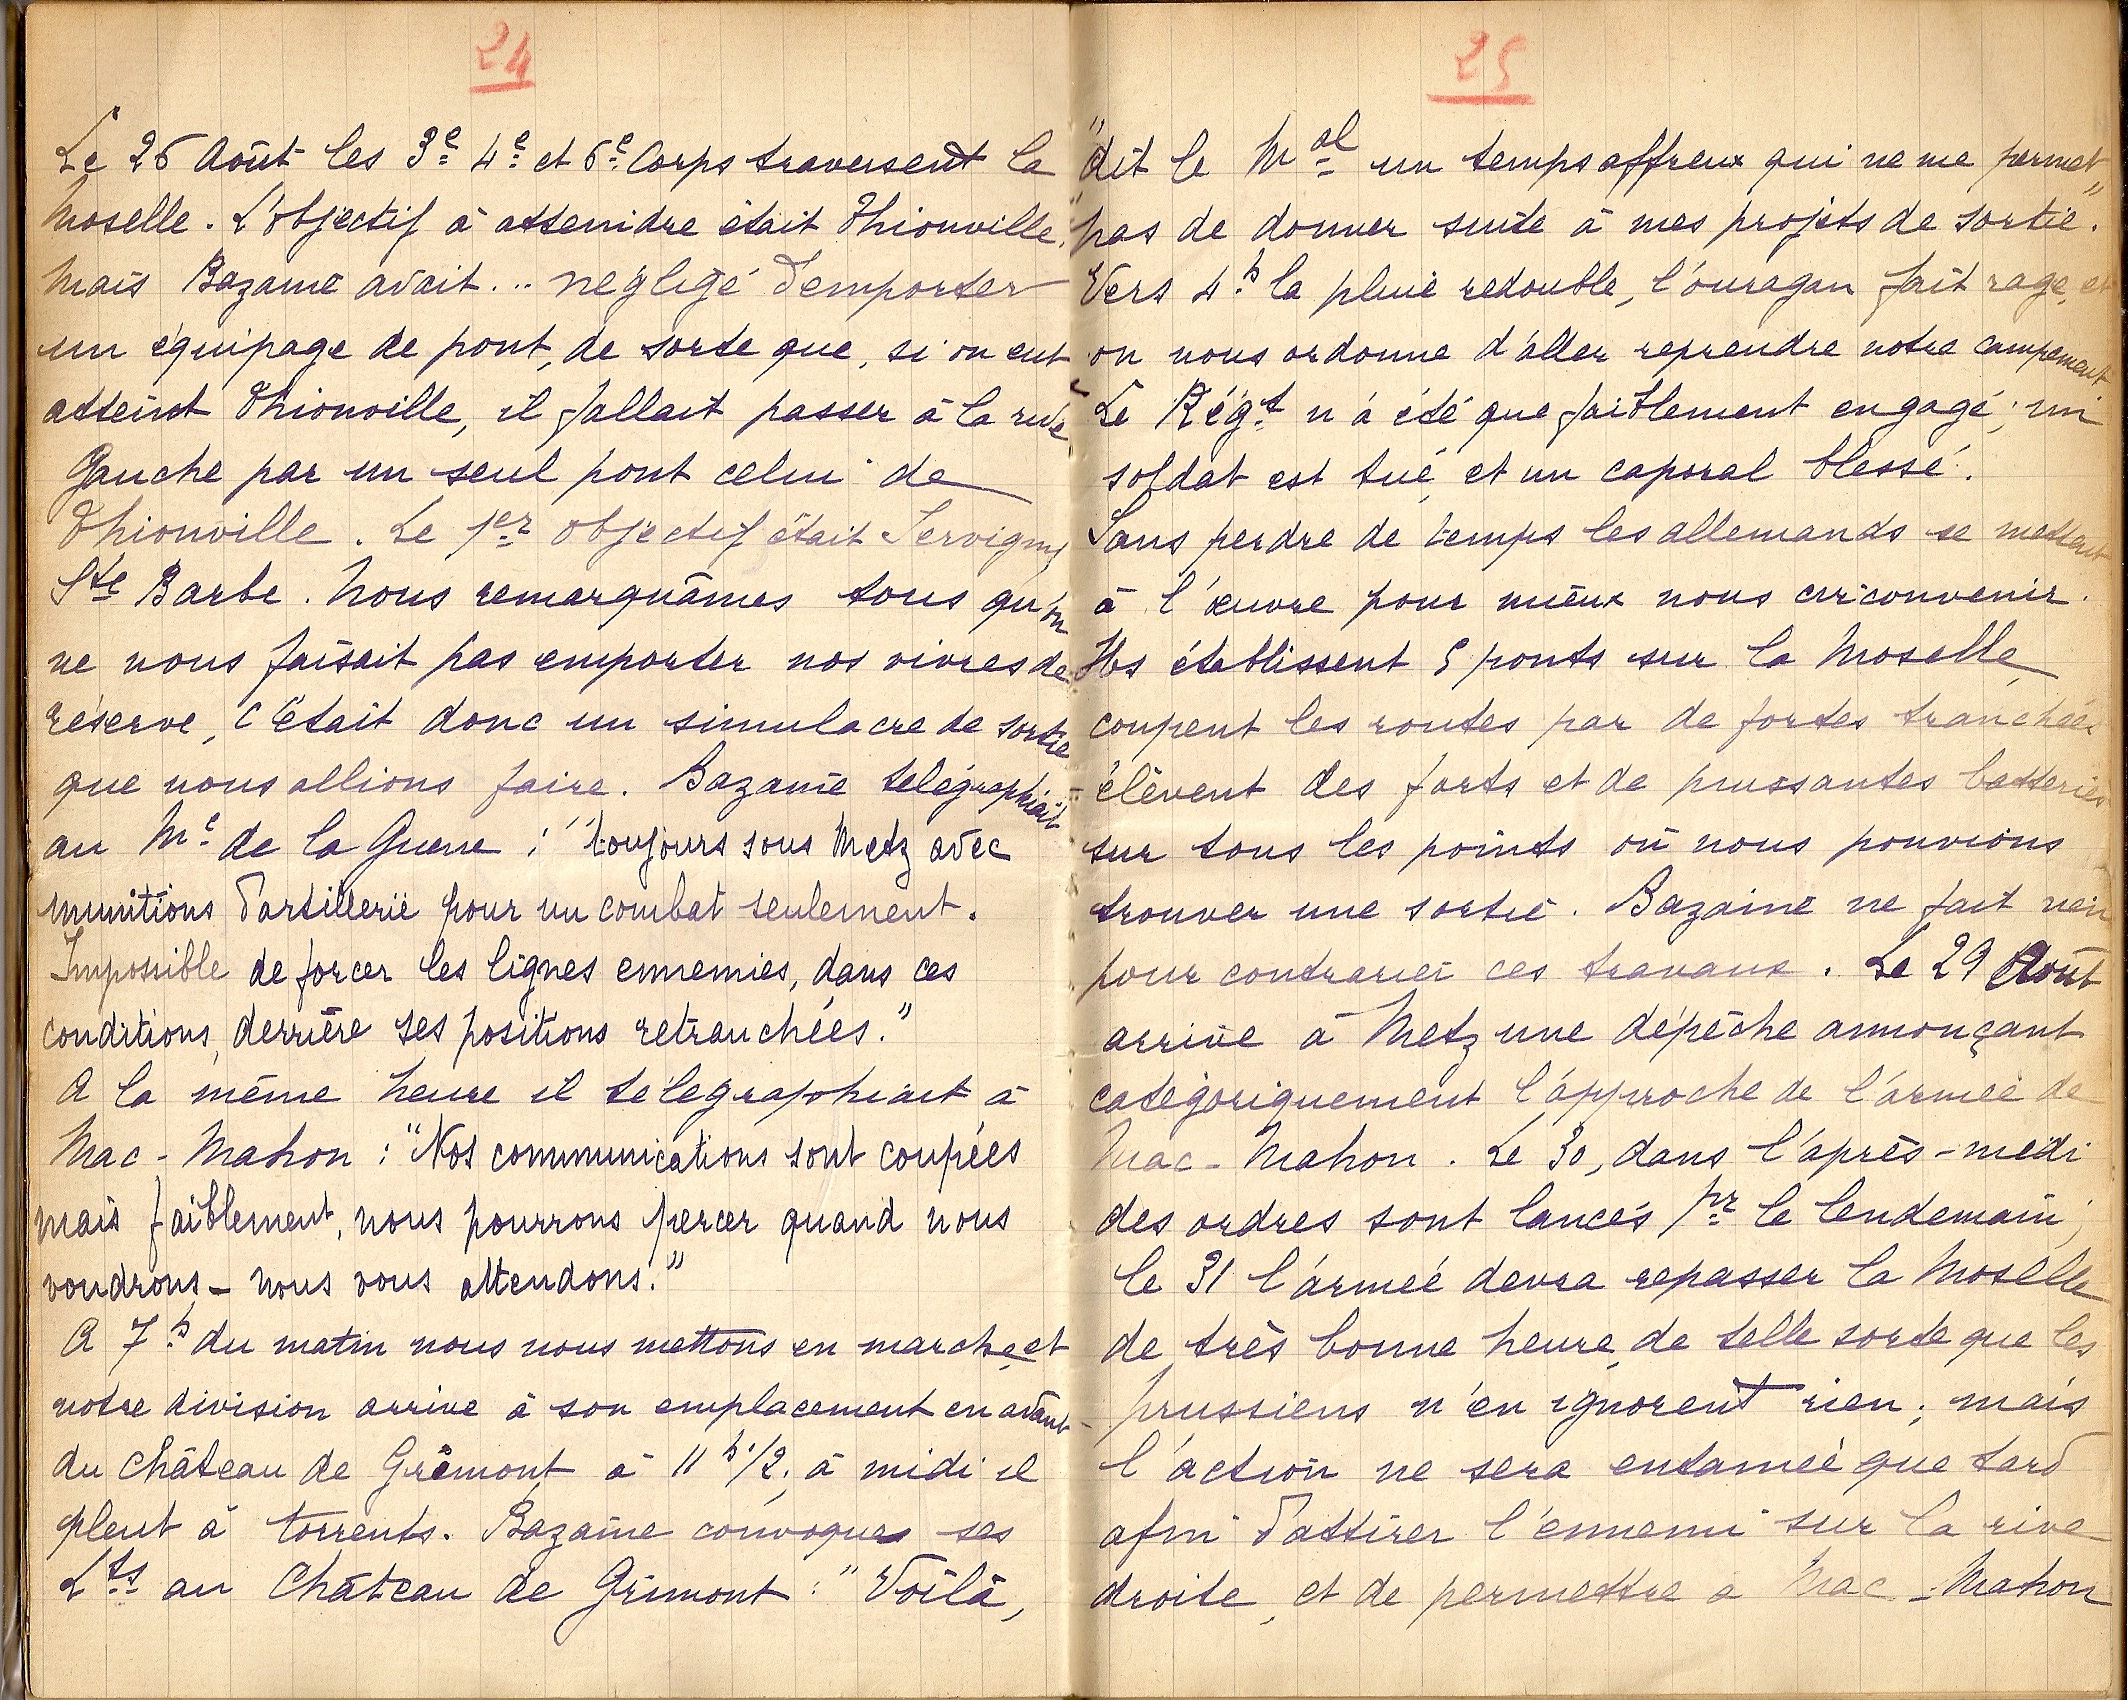 24
Le 26 Août les 3e 4e et 6e Corps traversent la
Moselle. L'objectif à atteindre était Thionville.
Mais Bazaine avait... négligé d'emporter
un équipage de pont, de sorte que, si on eut
atteint Thionville, il fallait passer à la rive
Gauche par un seul pont celui de
Thionville. Le 1er objectif était Servigny
Ste Barbe. Nous remarquâmes tous qu'on
ne nous faisait pas emporter nos vivres de
réserve, c'était donc un simulacre de sortie
que nous allions faire. Bazaine télégraphiait
au Me de la Guerre : "toujours sous Metz avec
munitions d'artillerie pour un combat seulement.
Impossible de forcer les lignes ennemies, dans ces
conditions, derrière ses positions retranchées."
A la même heure il télégraphiait à
Mac-Mahon : "Nos communications sont coupées
mais faiblement, nous pourrons percer quand nous
voudrons - nous vous attendons."
A 7h du matin nous nous mettons en marche, et
notre division arrive à son emplacement en avant
du château de Grimont à 11h 1/2; à midi il
pleut à torrents. Bazaine convoque ses
Lts au Château de Grimont : "Voilà,
25
"dit le Mal un temps affreux qui ne me permet
"pas de donner suite à mes projets de sortie".
Vers 4h la pluie redouble, l'ouragan fait rage, et
on nous ordonne d'aller reprendre notre campement
Le Régt n'a été que faiblement engagé; un
soldat est tué, et un caporal blessé.
Sans perdre de temps les allemands se mettent
à l'œuvre pour mieux nous circonvenir.
Ils établissent 5 ponts sur la Moselle,
coupent les routes par de fortes tranchées
élèvent des forts et de puissantes batteries
sur tous les points où nous pouvions
trouver une sortie. Bazaine ne fait rien
pour contrarier ces travaux. Le 29 Août
arrive à Metz une dépêche annonçant
catégoriquement l'approche de l'armée de
Mac-Mahon. Le 30, dans l'après-midi
des ordres sont lancés pr le lendemain;
le 31 l'armée devra repasser la Moselle
de très bonne heure, de telle sorte que les
prussiens n'en ignorent rien; mais
l'action ne sera entamée que tard
afin d'attirer l'ennemi sur la rive
droite, et de permettre à Mac-Mahon